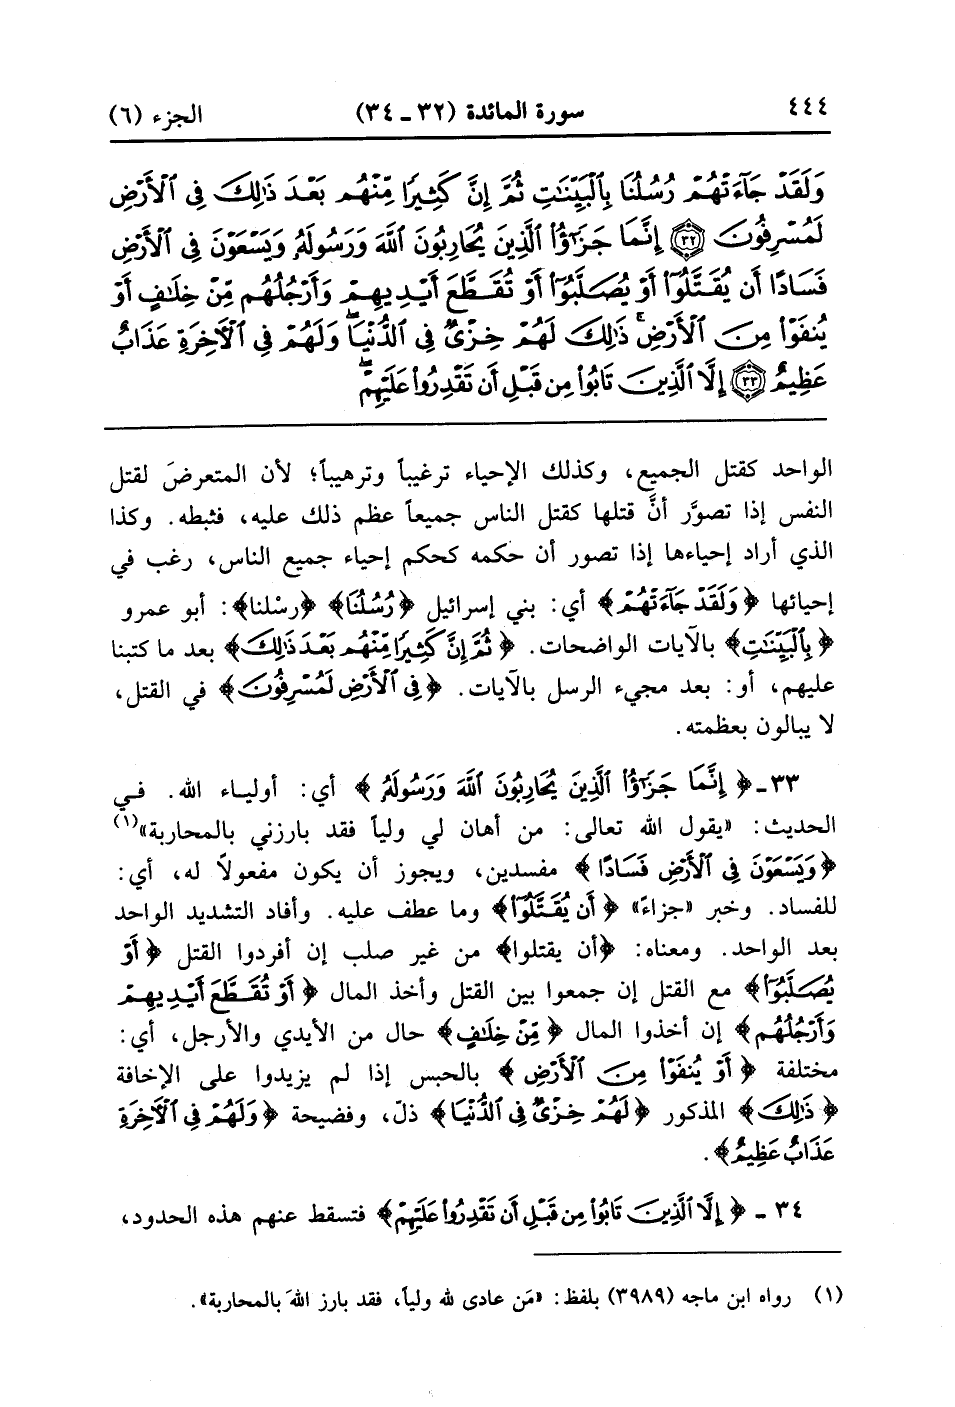 ٤٤٤ سورة المائدة (٣٢ ـ ٣٤) الجزء (٦)
وَلَقَدْ جَآءَتْهُمْ رُسُلُنَا بِالْبَيِّنَٰتِ ثُمَّ إِنَّ كَثِيرًا مِّنْهُم بَعْدَ ذَٰلِكَ فِى ٱلْأَرْضِ
لَمُسْرِفُونَ ﴿٣٢﴾ إِنَّمَا جَزَٰٓؤُا۟ ٱلَّذِينَ يُحَارِبُونَ ٱللَّهَ وَرَسُولَهُۥ وَيَسْعَوْنَ فِى ٱلْأَرْضِ
فَسَادًا أَن يُقَتَّلُوٓا۟ أَوْ يُصَلَّبُوٓا۟ أَوْ تُقَطَّعَ أَيْدِيهِمْ وَأَرْجُلُهُم مِّنْ خِلَٰفٍ أَوْ
يُنفَوْا۟ مِنَ ٱلْأَرْضِ ۚ ذَٰلِكَ لَهُمْ خِزْىٌ فِى ٱلدُّنْيَا ۖ وَلَهُمْ فِى ٱلْءَاخِرَةِ عَذَابٌ
عَظِيمٌ ﴿٣٣﴾ إِلَّا ٱلَّذِينَ تَابُوا۟ مِن قَبْلِ أَن تَقْدِرُوا۟ عَلَيْهِمْ ۖ
الواحد كقتل الجميع، وكذلك الإحياء ترغيباً وترهيباً؛ لأن المتعرضَ لقتل
النفس إذا تصوَّر أنَّ قتلها كقتل الناس جميعاً عظم ذلك عليه، فثبطه. وكذا
الذي أراد إحياءها إذا تصور أن حكمه كحكم إحياء جميع الناس، رغب في
إحيائها ﴿وَلَقَدْ جَآءَتْهُمْ﴾ أي: بني إسرائيل ﴿رُسُلُنَا﴾ ﴿رسْلنا﴾: أبو عمرو
﴿بِالْبَيِّنَٰتِ﴾ بالآيات الواضحات. ﴿ثُمَّ إِنَّ كَثِيرًا مِّنْهُم بَعْدَ ذَٰلِكَ﴾ بعد ما كتبنا
عليهم، أو: بعد مجيء الرسل بالآيات. ﴿فِى ٱلْأَرْضِ لَمُسْرِفُونَ﴾ في القتل،
لا يبالون بعظمته.
٣٣ ـ ﴿إِنَّمَا جَزَٰٓؤُا۟ ٱلَّذِينَ يُحَارِبُونَ ٱللَّهَ وَرَسُولَهُۥ﴾ أي: أولياء الله. في
الحديث: «يقول الله تعالى: من أهان لي ولياً فقد بارزني بالمحاربة»(١)
﴿وَيَسْعَوْنَ فِى ٱلْأَرْضِ فَسَادًا﴾ مفسدين، ويجوز أن يكون مفعولاً له، أي:
للفساد. وخبر «جزاءً» ﴿أَن يُقَتَّلُوٓا۟﴾ وما عطف عليه. وأفاد التشديد الواحد
بعد الواحد. ومعناه: ﴿أن يقتلوا﴾ من غير صلب إن أفردوا القتل ﴿أَوْ
يُصَلَّبُوٓا۟﴾ مع القتل إن جمعوا بين القتل وأخذ المال ﴿أَوْ تُقَطَّعَ أَيْدِيهِمْ
وَأَرْجُلُهُم﴾ إن أخذوا المال ﴿مِّنْ خِلَٰفٍ﴾ حال من الأيدي والأرجل، أي:
مختلفة ﴿أَوْ يُنفَوْا۟ مِنَ ٱلْأَرْضِ﴾ بالحبس إذا لم يزيدوا على الإخافة
﴿ذَٰلِكَ﴾ المذكور ﴿لَهُمْ خِزْىٌ فِى ٱلدُّنْيَا﴾ ذلّ، وفضيحة ﴿وَلَهُمْ فِى ٱلْءَاخِرَةِ
عَذَابٌ عَظِيمٌ﴾.
٣٤ ـ ﴿إِلَّا ٱلَّذِينَ تَابُوا۟ مِن قَبْلِ أَن تَقْدِرُوا۟ عَلَيْهِمْ﴾ فتسقط عنهم هذه الحدود،
(١) رواه ابن ماجه (٣٩٨٩) بلفظ: «مَن عادى لله ولياً، فقد بارز اللهَ بالمحاربة».